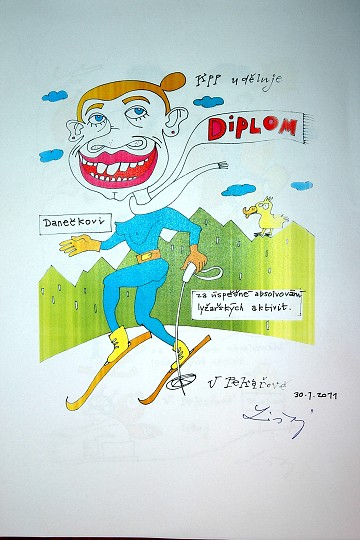 PPP uděluje
DiPLOM
Danečkovi
za úspěšné absolvování
lyžařských aktivit.
V Pekařově
30.1.2011